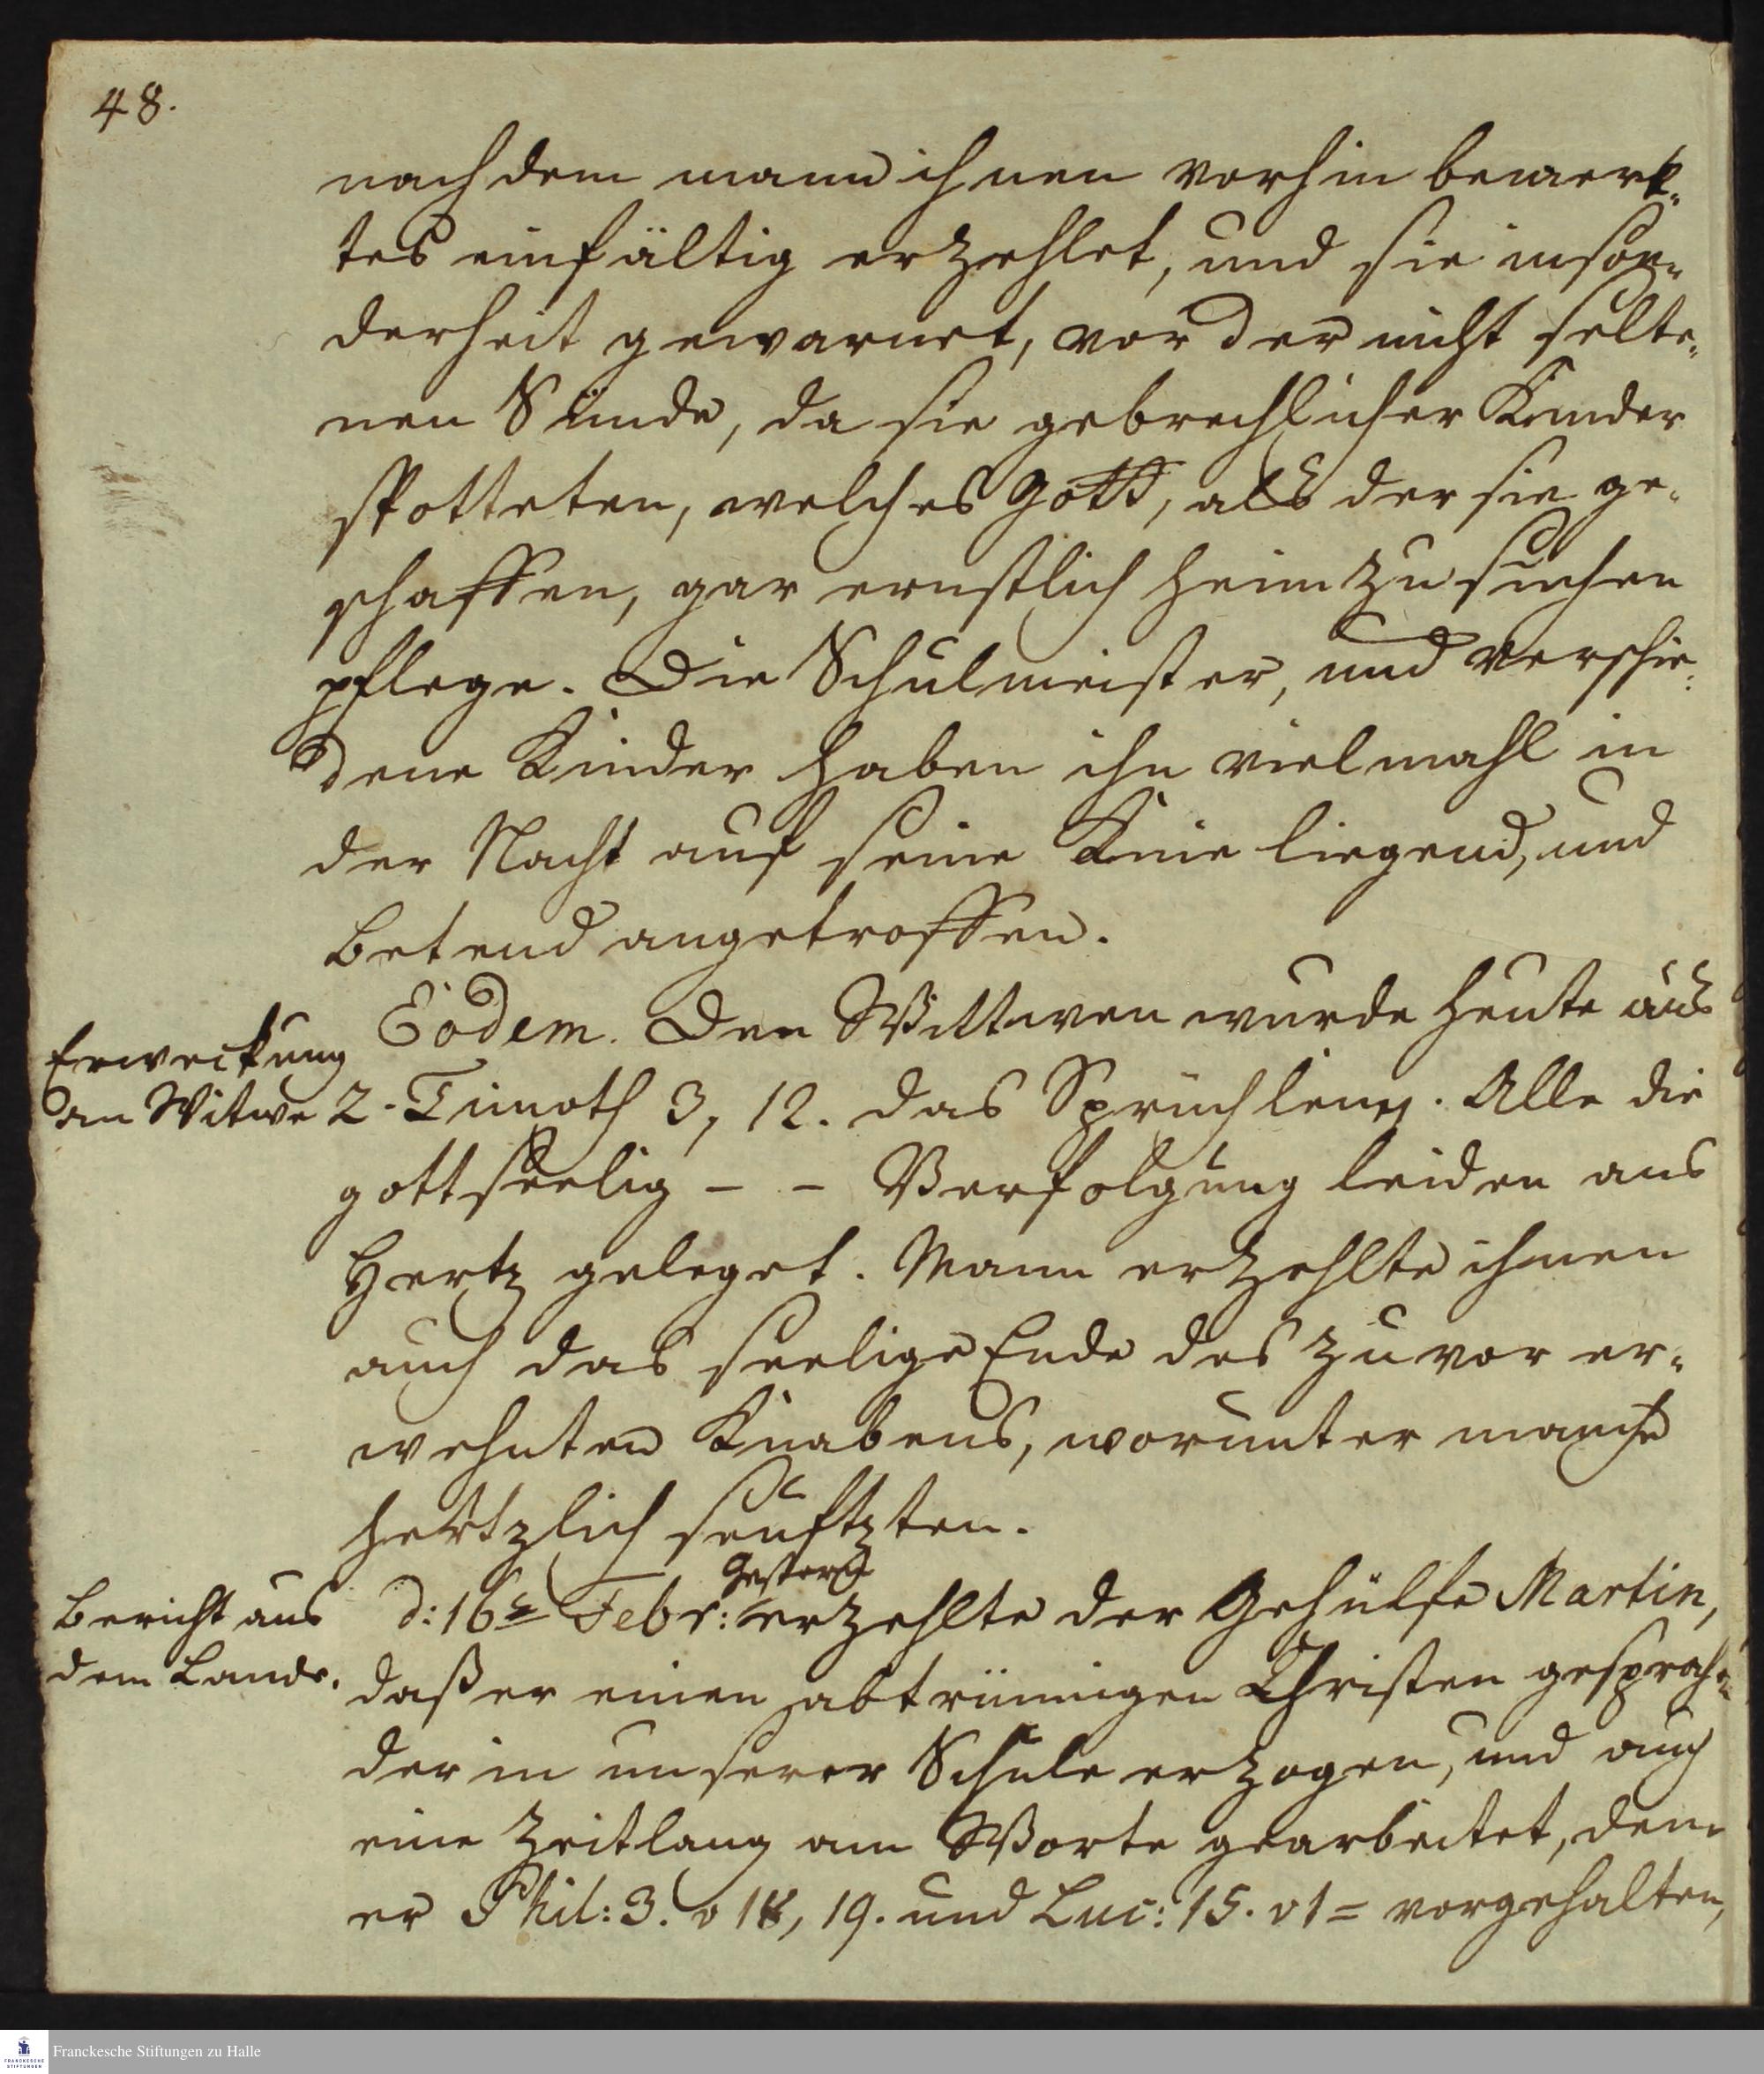 48.
nachdem mann ihnen vorhin bemerk-
tes einfältig erzehlet, und sie inson-
derheit gewarnet, vor der nicht selte-
nen Sünde, da sie gebrechlicher Kinder
spotteten, welches Gott, als der sie ge-
schaffen, gar ernstlich heimzusuchen
pflege. Die Schulmeister, und verschie-
dene Kinder haben ihn vielmahl in
der Nacht auf seine Knie liegend, und
betend angetroffen.
Erweckung
an Witwe
Eodem. Den Wittwen wurde heute aus
2. Timoth 3, 12. das Sprüchlein. Alle die
gottseelig - - Verfolgung leiden ans
Hertz geleget. Mann erzehlte ihnen
auch das seelige Ende des zuvor er-
wehnten Knabens, worunter manche
hertzlich seuftzten.
Bericht aus
dem Lande.
Gestern
d: 16ten Febr: erzehlte der Gehülfe Martin,
daß er einen abtrünnigen Christen gesproch-
der in unserer Schule erzogen, und auch
eine Zeitlang am Worte gearbeitet, dem
er Phil: 3. v 18, 19. und Luc: 15. v 1 = vorgehalten,
Franckesche Stiftungen zu Halle
FRANCKESCHE
STIFTUNGEN